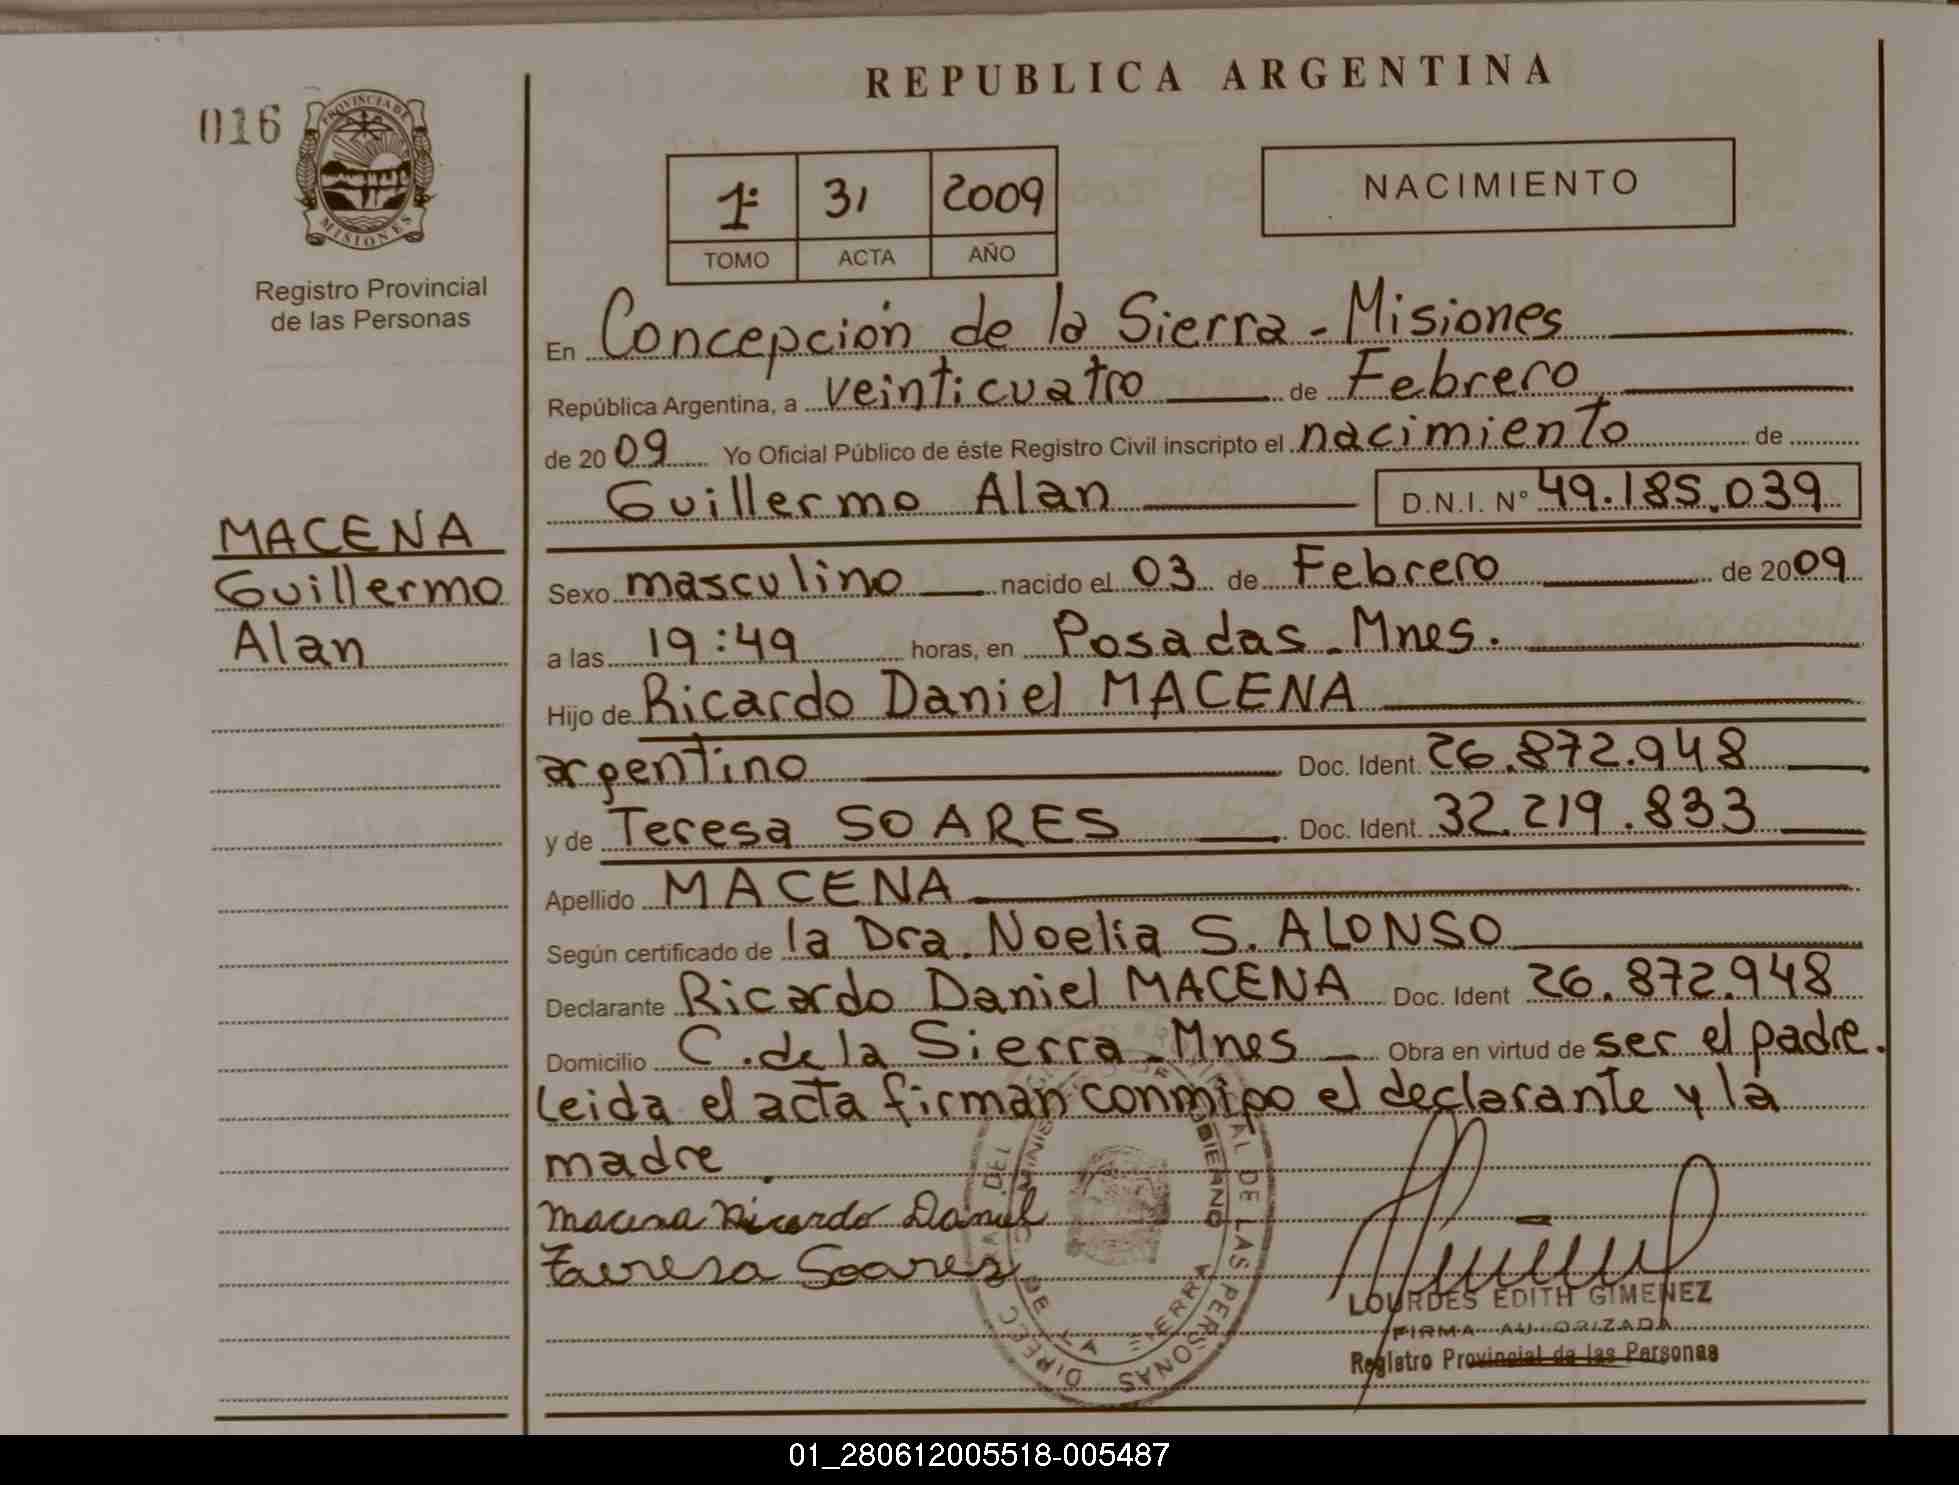 REPUBLICA ARGENTINA
016
PROVINCIA DE
MISIONES
Registro Provincial
de las Personas
1º 31 2009
TOMO ACTA AÑO
NACIMIENTO
En Concepción de la Sierra - Misiones
República Argentina, a veinticuatro de Febrero
de 2009 Yo Oficial Público de éste Registro Civil inscripto el nacimiento de
Guillermo Alan D.N.I. Nº 49.185.039
MACENA
Guillermo
Alan
Sexo masculino nacido el 03 de Febrero de 2009
a las 19:49 horas, en Posadas - Mnes.
Hijo de Ricardo Daniel MACENA
argentino Doc. Ident. 26.872.948
y de Teresa SOARES Doc. Ident. 32.219.833
Apellido MACENA
Según certificado de la Dra. Noelia S. ALONSO
Declarante Ricardo Daniel MACENA Doc. Ident 26.872.948
Domicilio C. de la Sierra - Mnes Obra en virtud de ser el padre.
Leida el acta firman conmigo el declarante y la
madre.
Macena Ricardo Daniel
Teresa Soares
LOURDES EDITH GIMENEZ
FIRMA AUTORIZADA
Registro Provincial de las Personas
01_280612005518-005487